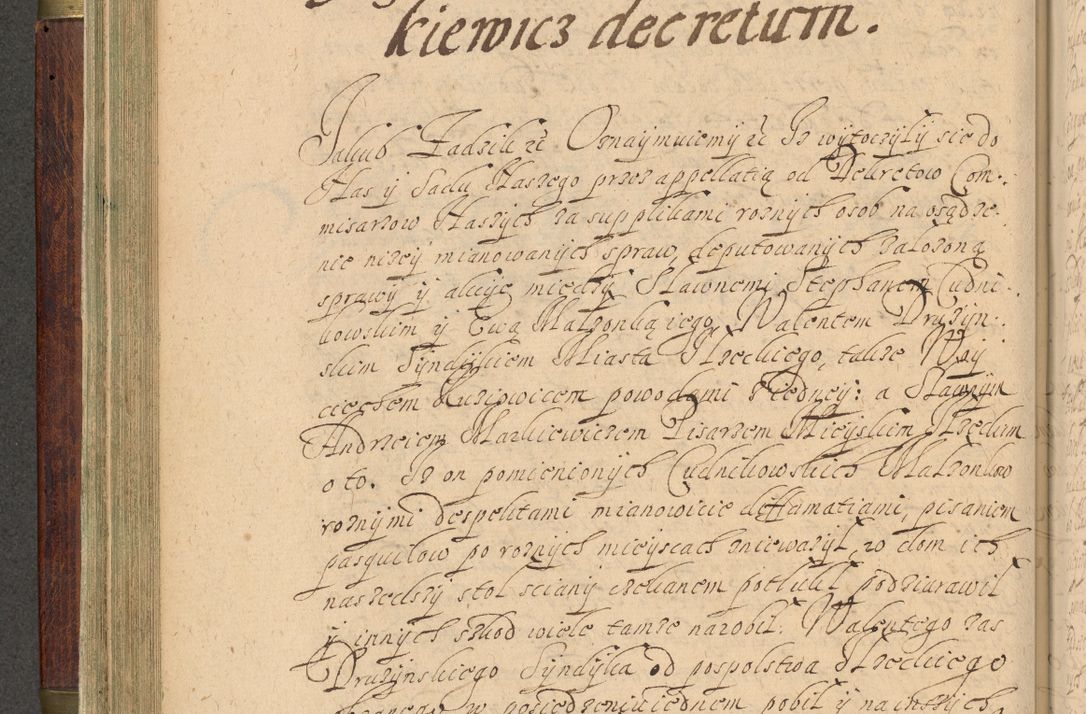 kiewicz decretum.
Jakub Zadzik etc Oznaymuiemÿ iż Gdÿ wÿtoczÿłÿ się do
Nas ÿ Sadu Naszego przez appellatią od Dekretow Com-
misarzow Naszÿch za supplikami roznÿch osob na osądze-
nie niżeÿ mianowanÿch spraw deputowanÿch założoną
sprawÿ ÿ akcÿe międzÿ Sławnemi Stephanem Cudni-
kowskim ÿ Ewą Małżonką iego, Walentem Drużÿn-
skim Sÿndÿkiem Miasta Kieleckiego, także Woÿ
ciechem powodami z iedneÿ: a Sławnÿm
Andrzeiem Markiewiczem Pisarzem Mieÿskim
o to. Iż on pomienionÿch Cudnikowskich Małżonkow
roznÿmi despektami mianowicie deffamatiami, pisaniem
pasquilow po roznÿch mieÿscach znieważÿł, w dom ich
naszedszÿ stoł scianÿ czekanem potłukł podziurawił
ÿ innÿch szkod wiele tamże narobił. Walentego zas
Drużÿnskiego Sÿndÿka od pospolstwa
w posiedzeniu iednem pobił ÿ na inszÿch